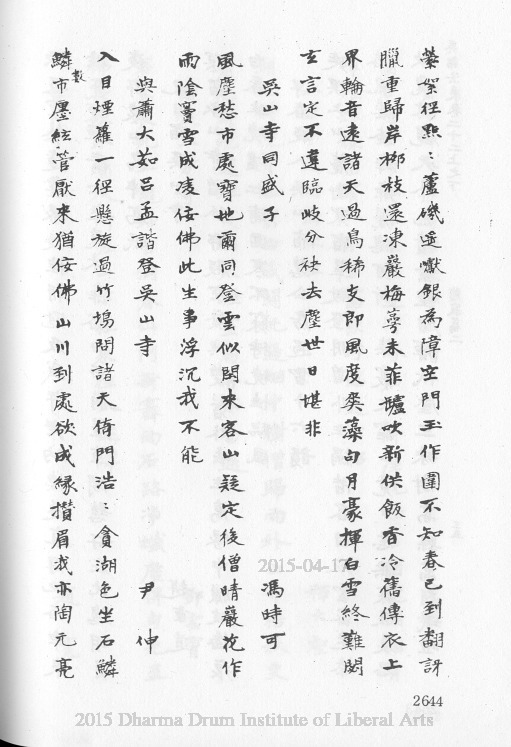 縈絮徑點：蘆磯遥嶽銀為障空門玉作圍不知春已到翻訝
臘重歸岸柳枝還凍嚴梅萼未菲罏吹新供飯香冷舊傳衣上
界輪音遠諸天過鳥稀支郎風度奚藻句月豪揮白雪終難閟
玄言定不違臨岐分袂去塵世日堪非
吳山寺同盛子
馮時可
風塵愁市處寶地爾同登雲似閒來客山疑定後僧晴巖花作
雨陰霽雪成凌佞佛此生事浮沉我不能
與蕭大茹呂孟諧登吳山寺
尹伸
入目煙蘿一徑懸旋過竹塢問諸天倚門浩：貪湖色坐石鱗
鱗市墨絃管厭來猶佞佛山川到處欲成緣攢眉我亦陶元亮
數
2644
2015-04-17
2015 Dharma Drum Institute of Liberal Arts